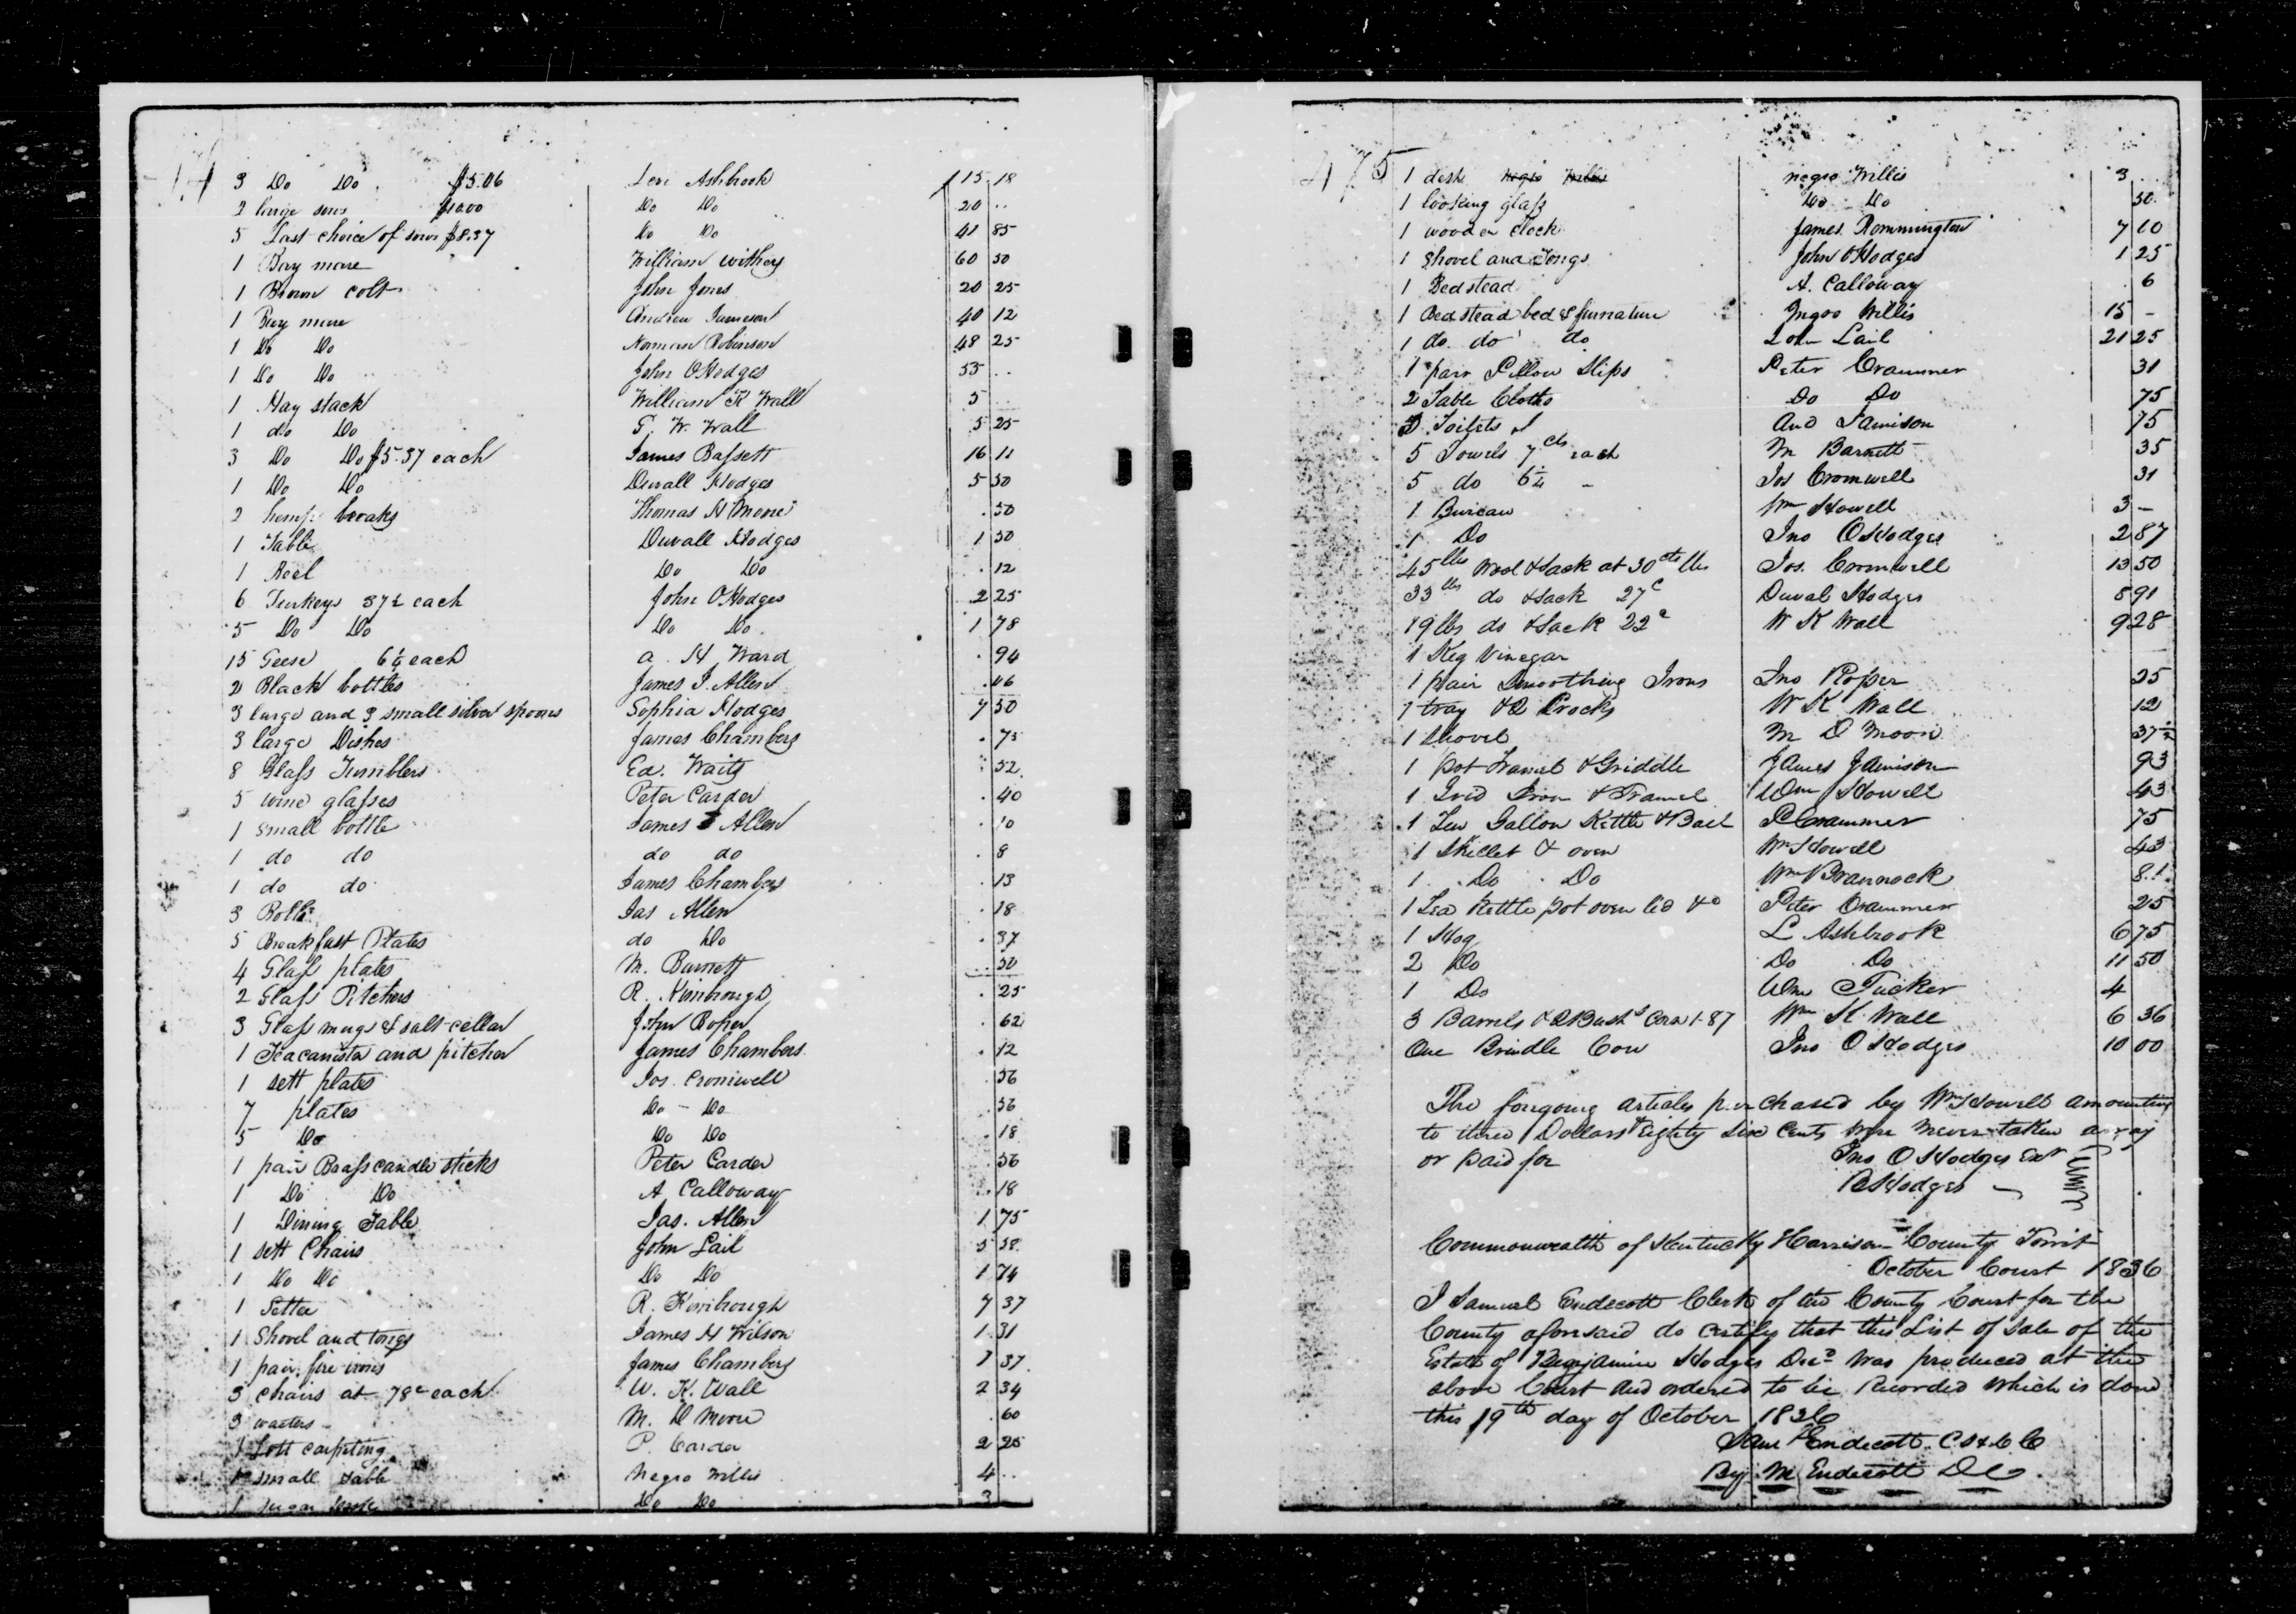 3 Do Do $5.06 Levi Ashbrook $15 18
2 large sows $10.00 Do Do 20 ..
5 Last choice of sows $8.37 Do Do 41 85
1 Bay mare William withers 60 50
1 Brown colt John Jones 20 25
1 Bay mare Andrew Jameson 40 12
1 Do Do Norman Robinson 48 25
1 Do Do John O Hodges 55 ..
1 Hay stack William K Wall 5 ..
1 do Do G. W. Wall 5 25
3 Do Do $5.37 each James Bassett 16 11
1 Do Do Duvall Hodges 5 50
2 hemp breaks Thomas H Moore .50
1 Table Duvall Hodges 1 50
1 Reel Do Do .12
6 Turkeys 37½ each John O Hodges 2 25
5 Do Do Do Do 1 78
15 Geese 6¼ each A. H Ward .94
2 Black bottles James J. Allen
3 large and 3 small silver spoons Sophia Hodges 7 50
3 large Dishes James Chambers .75
8 Glass Tumblers Ed. Waits .52
5 wine glasses Peter Carder .40
1 small bottle James J Allen .10
1 do do do do .8
1 do do James Chambers .13
3 Jas Allen .18
5 Breakfast Plates do Do .37
4 Glass plates M. Barnett .50
2 Glass Pitchers R. Kimbrough .25
3 Glass mugs & salt-cellar John Roper .62
1 Teacanister and pitcher James Chambers .12
1 sett plates Jos. Cromwell .56
7 plates Do - Do .56
5 Do Do Do .18
1 pair Brass candle sticks Peter Carder .56
1 Do Do A Calloway .18
1 Dining Table Jas. Allen 1 75
1 sett Chairs John Lail 5 58
1 Do Do Do Do 1 74
1 Settee R. Kimbrough 7 37
1 Shovel and tongs James H Wilson 1 31
1 pair fire irons James Chambers 1 37
3 chairs at 78c each W. K. Wall 2 34
3 waiters M. D Moore .60
1 Lott carpeting P. Carder 2 25
1 small table Negro Willis 4 ..
1 Do Do 3
475
1 desk negro Willis negro Willis 3
1 looking glass Do Do 50
1 wooden clock James Remmington 7 10
1 Shovel and Tongs John O Hodges 1 25
1 Bedstead A. Calloway . 6
1 Bedstead bed & furnature Negro Willis 15 -
1 do do do John Lail 21 25
1 pair Pillow Slips Peter Crammer 31
2 Table Cloths Do Do 75
3 Toilets And Jamison 75
5 Towels 7 cts each M Barnett 35
5 do 6¼ - Jos Cromwell 31
1 Bureau Wm Howell 3 -
1 Do Jno O Hodges 2 87
45 lbs Wool & Sack at 30 cts lb Jos. Cromwell 13 50
33 lbs do & sack 27c Duval Hodges 8 91
19 lbs do & Sack 22c W K Wall 9 28
1 Keg Vinegar
1 pair Smoothing Irons Jno Roper 25
1 tray & 2 Crocks W K Wall 12
1 Shovel M D Moore 37½
1 Pot Tramel & Griddle James Jamison 93
1 Grid Iron & Tramel Wm Howell 43
1 Ten Gallon Kettle & Bail P Crammer 75
1 Skillet & oven Wm Howell 43
1 Do Do Wm Brannock 81
1 Tea Kettle pot oven lid &c Peter Crammer 25
1 Hog L Ashbrook 6 75
2 Do Do Do 11 50
1 Do Wm Tucker 4
3 Barrels & 2 Bush's Corn 1.87 Wm K Wall 6 36
One Brindle Cow Jno O Hodges 10 00
The forgoing articles purchased by Wm Howell amounting
to three Dollars & Eighty Six Cents were never taken away
or paid for Jno O Hodges Exr
B Hodges
Commonwealth of Kentucky Harrison County Towit
October Court 1836
I Samuel Endecott Clerk of the County Court for the
County aforesaid do certify that this List of Sale of the
Estate of Benjamin Hodges Decd was produced at the
above Court and ordered to be Recorded which is done
this 19th day of October 1836
Saml Endecott C H C C
By M Endecott DC